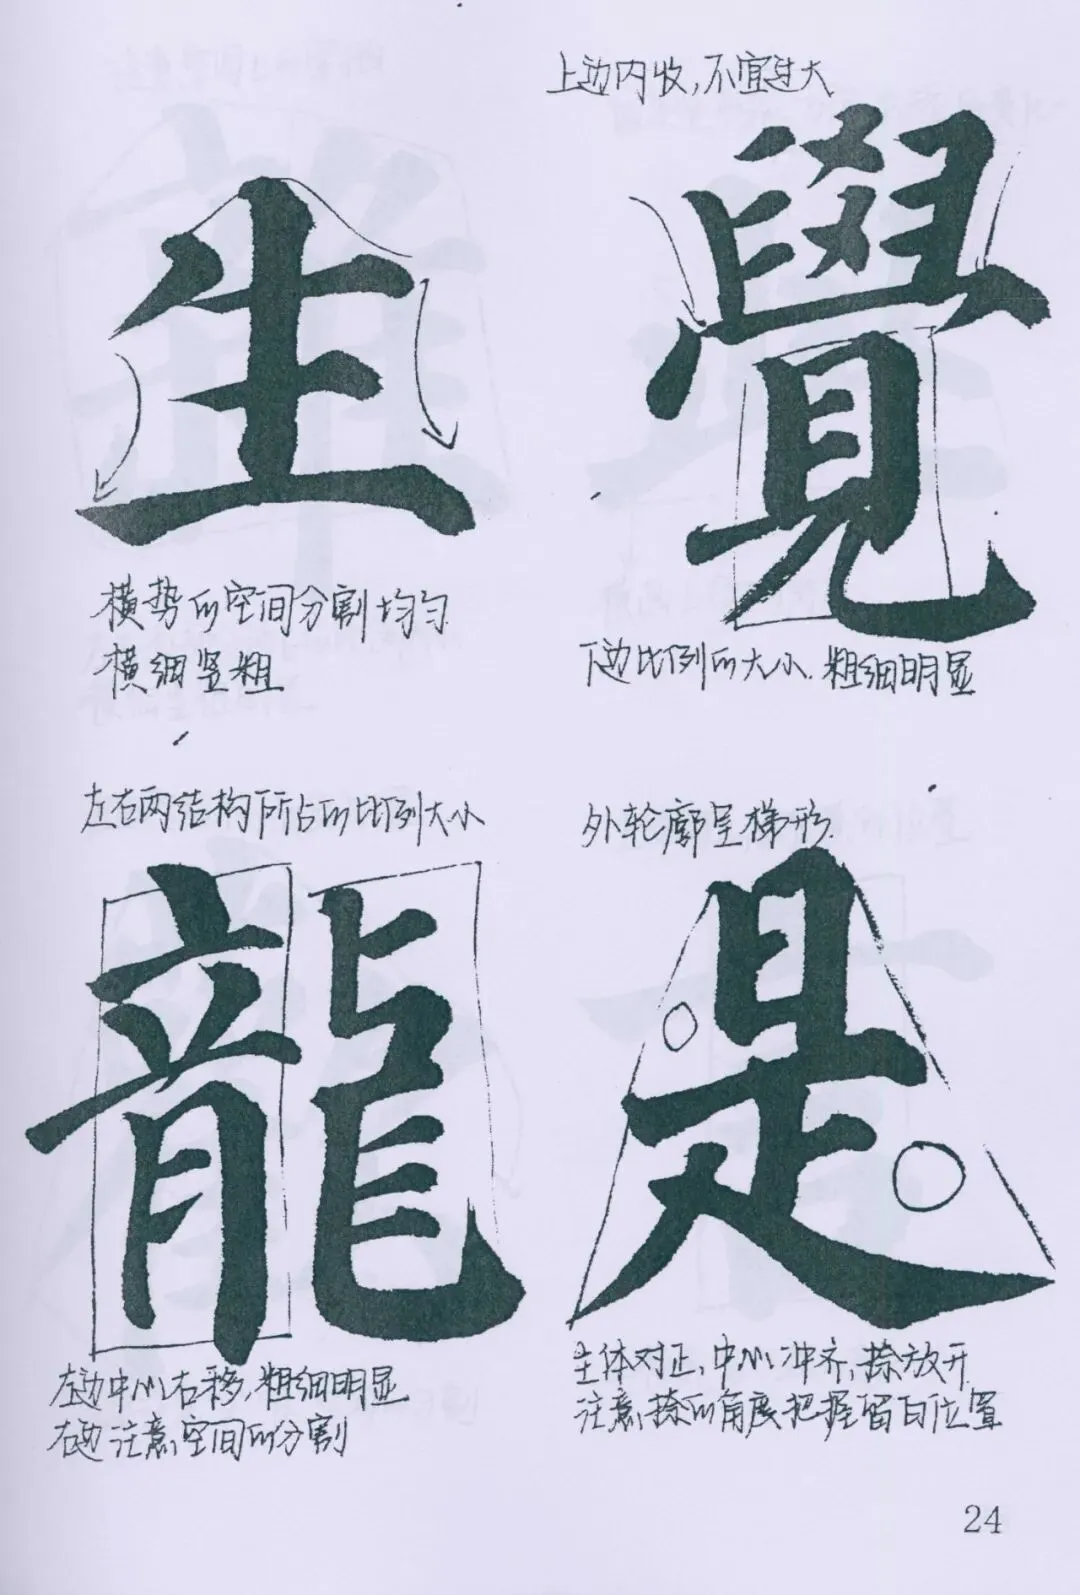 生
横势的空间分割均匀
横细竖粗
上边内收,不宜过大
覺
下边比例的大小.粗细明显
左右两结构所占的比例大小
龍
左边中心右移,粗细明显
右边注意空间的分割
外轮廓呈梯形.
是
主体对正,中心冲齐,捺放开
注意捺的角度把握留白位置
24